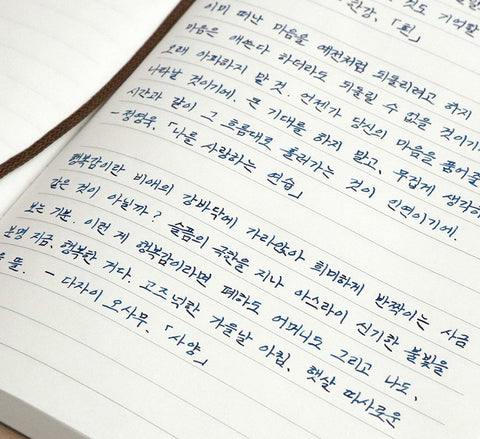 것도 기억할
한강, 「흰」
이미 떠난 마음을 예전처럼 되돌리려고 하지
마음은 애쓴다 하더라도 되돌릴 수 없을 것이기
오래 아파하지 말 것. 언젠가 당신의 마음을 품어줄
나타날 것이기에. 큰 기대를 하지 말고, 무겁게 생각하
시간과 같이 그 흐름대로 흘러가는 것이 인연이기에.
- 정영욱, 「나를 사랑하는 연습」
행복감이란 비애의 강바닥에 가라앉아 희미하게 반짝이는 사금
같은 것이 아닐까? 슬픔의 극한을 지나 아스라이 신기한 불빛을
보는 기분. 이런 게 행복감이라면 폐하도 어머니도 그리고 나도,
분명 지금, 행복한 거다. 고즈넉한 가을날 아침. 햇살 따사로운
뜰. - 다자이 오사무, 「사양」